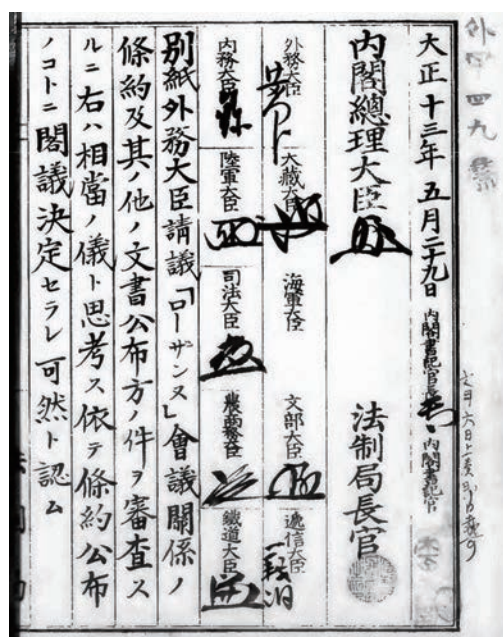 外甲四九
大正十三年五月二十九日 內閣書記官長 內閣書記官
內閣總理大臣 法制局長官
外務大臣 大藏大臣 海軍大臣 文部大臣 遞信大臣
內務大臣 陸軍大臣 司法大臣 農商務大臣 鐵道大臣
別紙外務大臣請議「ローザンヌ」會議關係ノ
條約及其ノ他ノ文書公布方ノ件ヲ審査ス
ルニ右ハ相當ノ儀ト思考ス依テ條約公布
ノコトニ閣議決定セラレ可然ト認ム